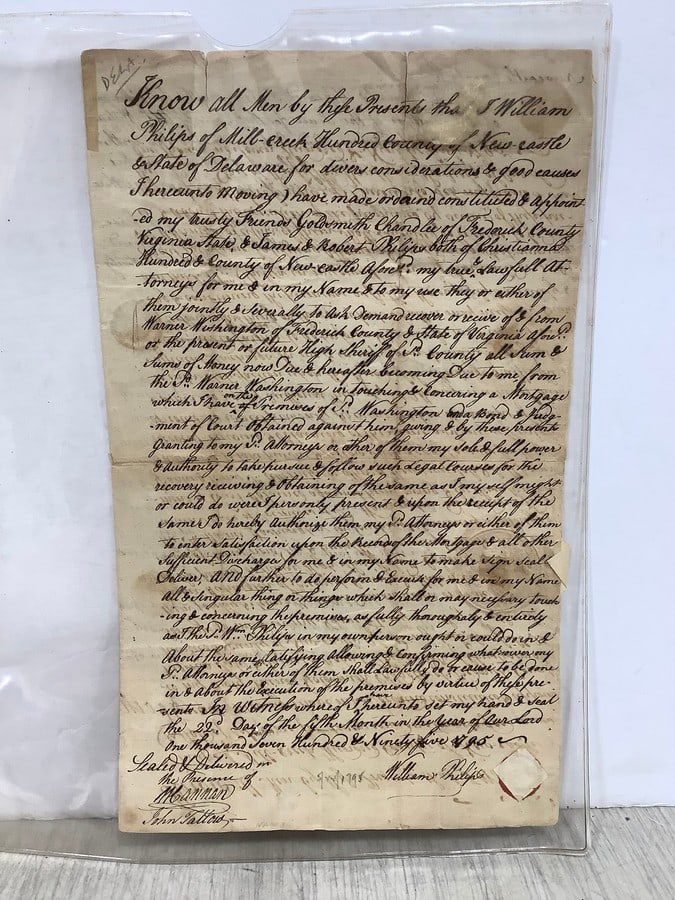 DELA.
Know all Men by these Presents tha I William
Philips of Mill-creek Hundred County of New-castle
& State of Delaware for divers considerations & good causes
I hereunto Moving) have made ordeind constituted & appoint
-ed my trusty Friends Goldsmith Chandlee of Fredrick County
Virginia State, & James & Robert Philips both of Christianna
Hundred & County of New-castle Afores.d my true, Lawfull At-
torneys for me & in my Name & to my use they or either of
them jointly & severally to Ask Demand recover or recive of & from
Warner Washington of Frederick County & State of Virginia afors.d
or the present or future High Sheriff of s.d County all Sum &
Sums of Money now Due & hereafter becoming Due to me, from
the s.d Warner Washington in touching & concering a Mortgage
which I have on the Premises of s.d Washington and a Bond & Judg-
ment of Court Obtained against him, giving & by these presents
Granting to my s.d Attorneys or either of them my sole & full power
& Authority to take pursue & follow such Legal Courses for the
recovery receiving & Obtaining of the same as I my self might
or could do were I personly present & upon the receipt of the
same I do hereby Authorize them my s.d Attorneys or either of them
to enter Satisfaction upon the Record of the Mortgage & all other
Sufficient Discharges for me & in my Name to make sign seal
Deliver, And further to do perform & Execute for me & in my Name
all & singular thing or things which shall or may necessary touch
-ing & concerning the premises, as fully thoroughely & entirely
as I the s.d Wm. Philips in my own person ought or could do in &
About the same, ratifying Allowing & Confirming whatsoever my
s.d Attorneys or either of them shall Lawfully do or cause to be done
in & about the Execution of the premises by virtue of these pre-
-sents In Witness whereof I have hereunto set my hand & seal
the 22.d Day of the fifth Month in the year of our Lord
One thousand Seven Hundred & Ninety five 1795
Sealed & Delivered in
the Presence of
William Philips
John Tatlow